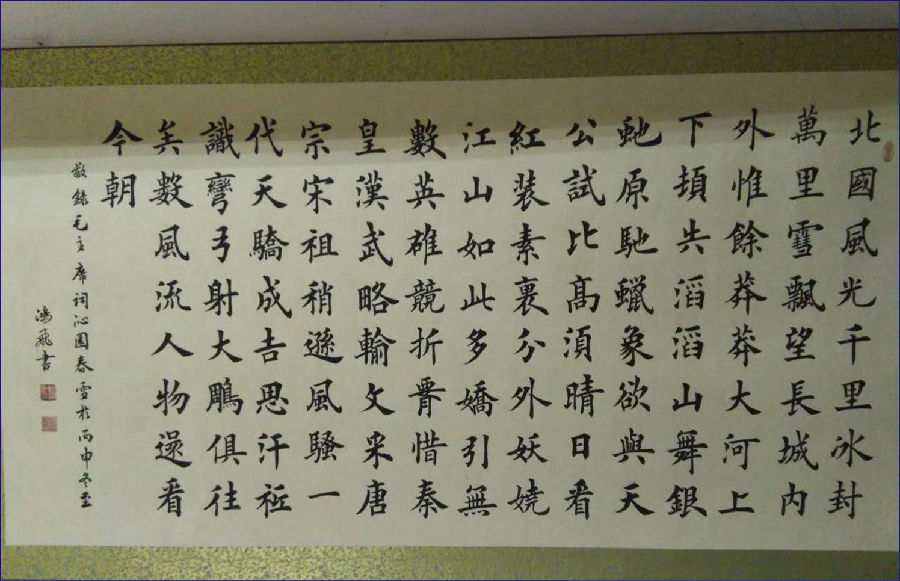 北國風光千里冰封
萬里雪飄望長城内
外惟餘莽莽大河上
下頓失滔滔山舞銀
虵原馳蠟象欲與天
公試比髙須晴日看
紅装素裹分外妖嬈
江山如此多嬌引無
數英雄競折腰惜秦
皇漢武略輸文采唐
宗宋祖稍遜風騷一
代天驕成吉思汗衹
識彎弓射大鵰俱往
矣數風流人物還看
今朝
敬錄毛主席詞沁園春雪於丙申冬至
鴻飛書